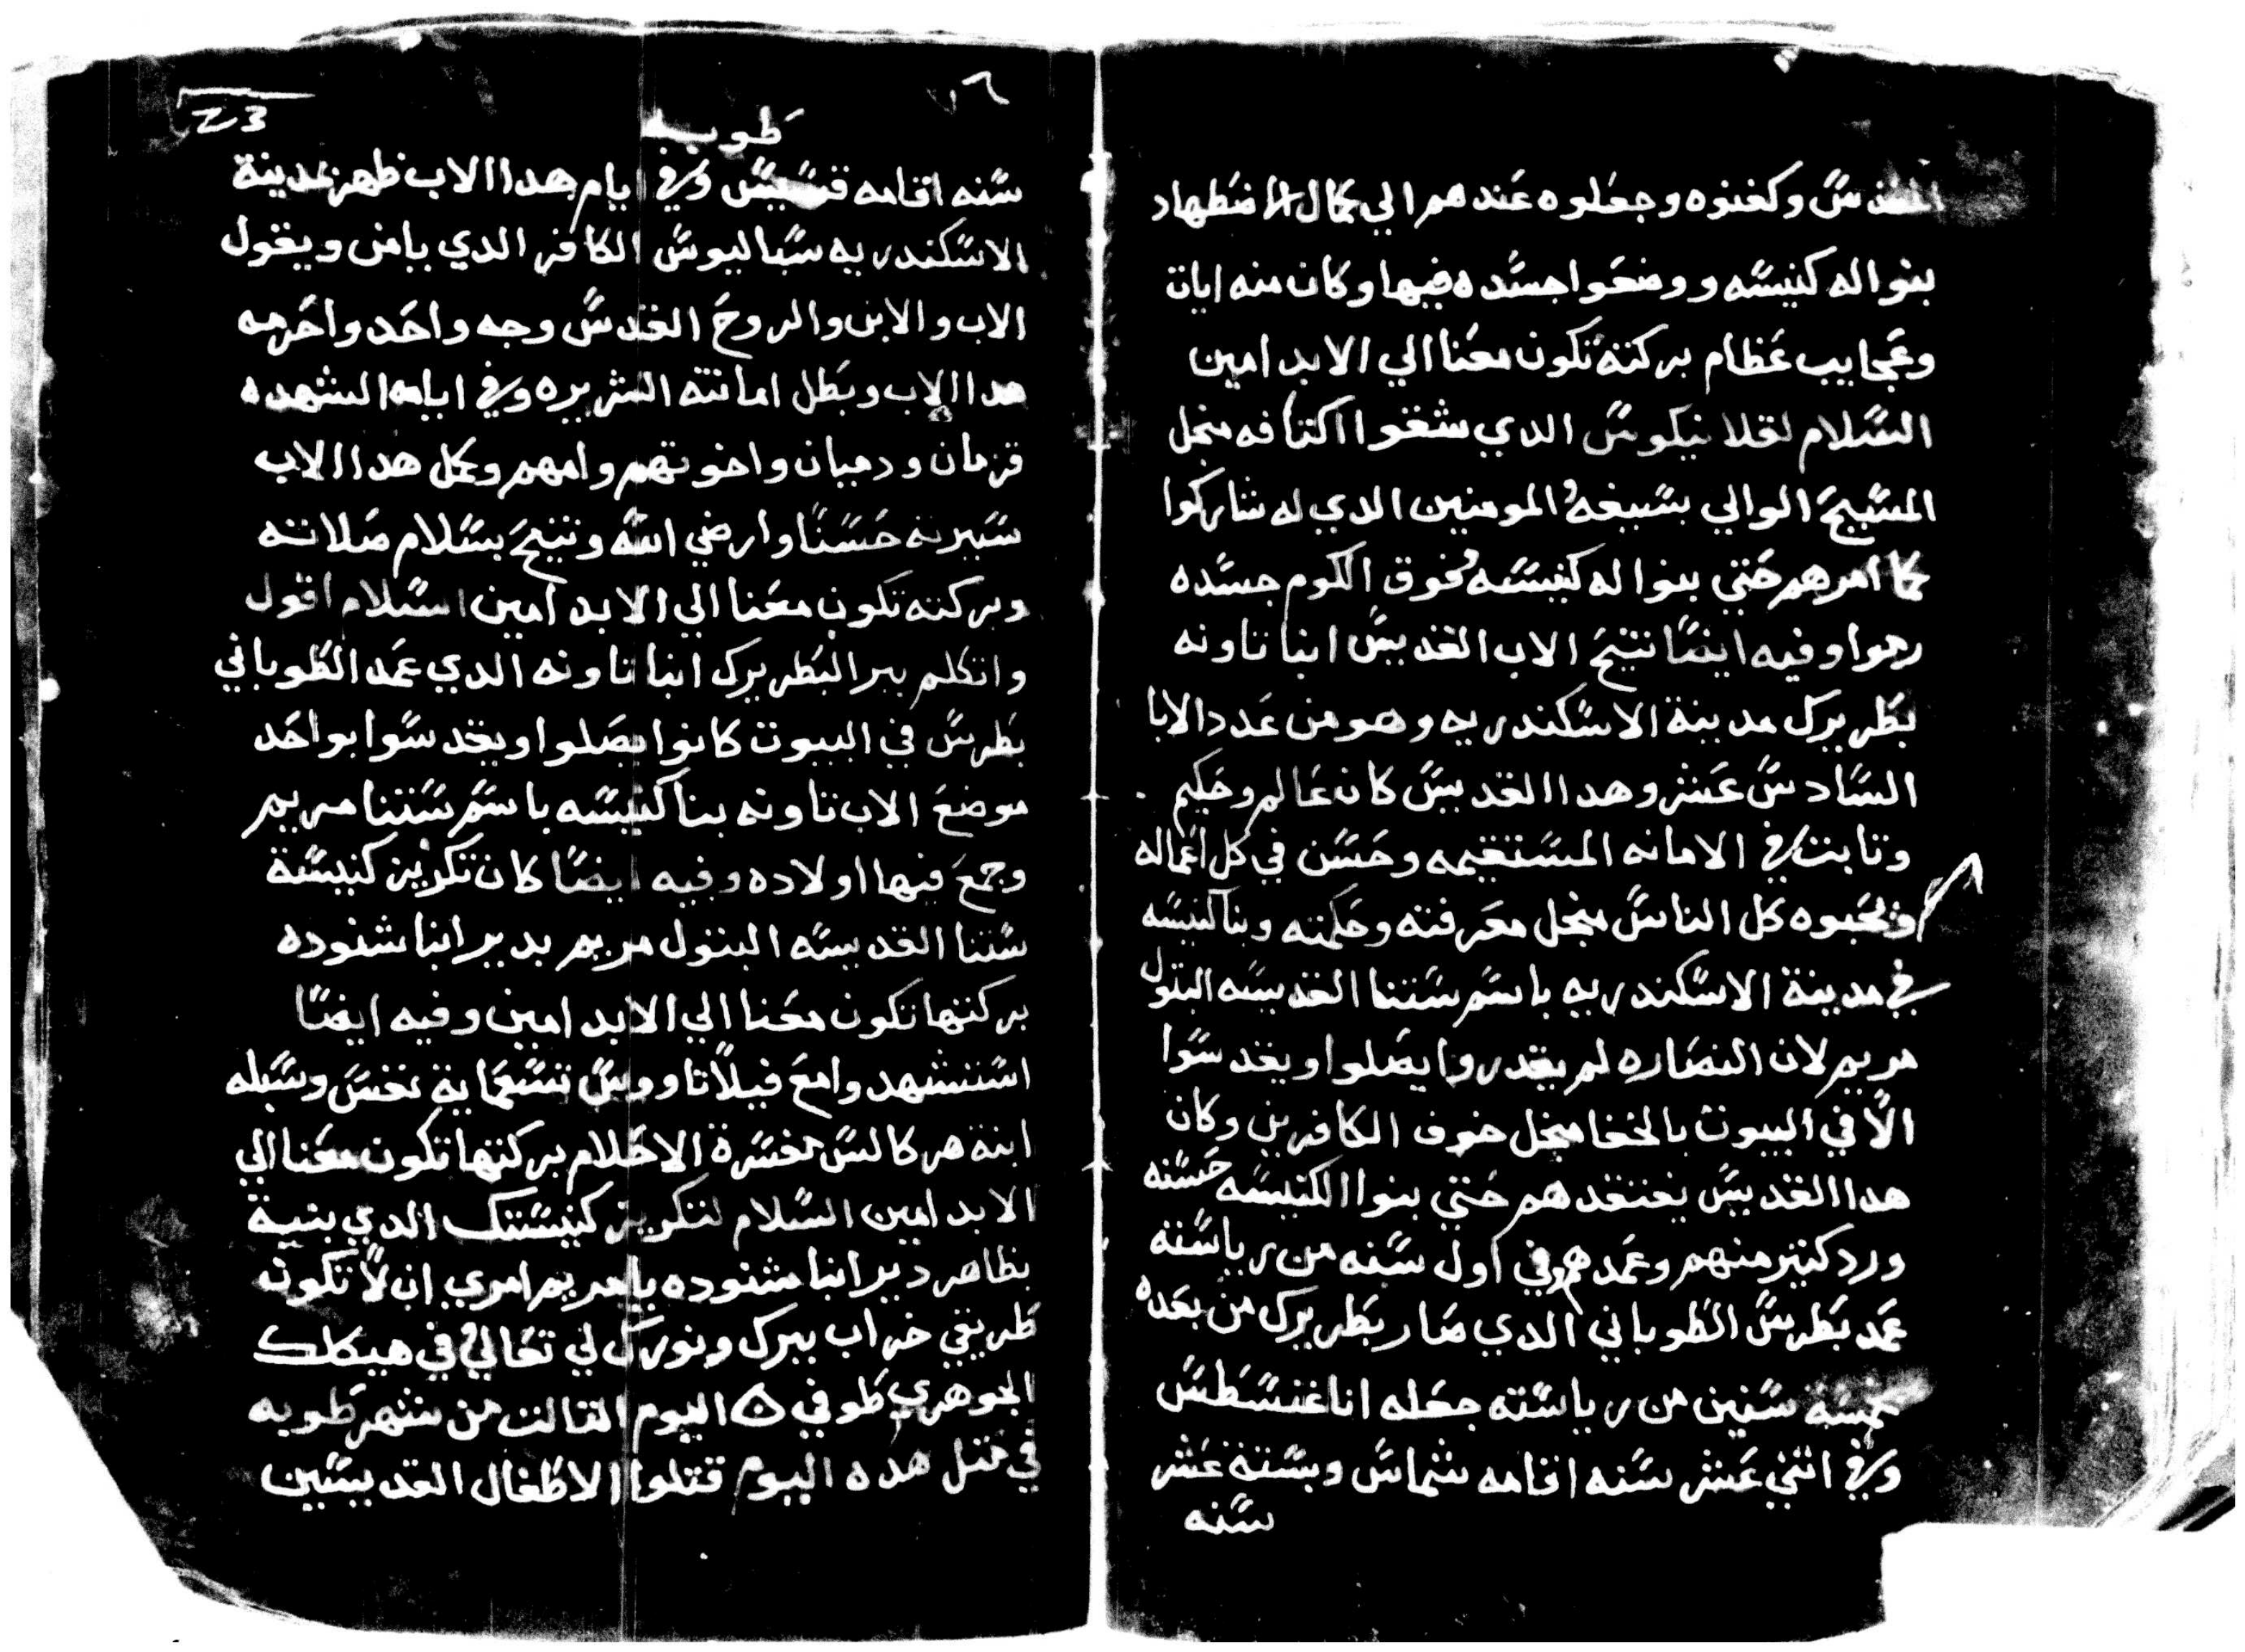 المقدس وكفنوه وجعلوه عندهم الي كمال الاضطهاد
بنوا له كنيسه ووضعوا جسده فيها وكان منه ايات
وعجايب عظام بركته تكون معنا الي الابد امين
السلام لقلانيكوس الدي شقوا اكتافه منجل
المسيح الوالي بسيفه المومنين الدي له شاركوا
كما امرهم حتي بنوا له كنيسه فوق الكوم جسده
رموا وفيه ايضا تنيح الاب القديس ابنا تاونه
بطريرك مدينة الاسكندريه وهو من عدد الابا
السادس عشر وهدا القديس كان عالم وحكيم
وتابت في الامانه المستقيمه وحسن في كل اعماله
ويحبوه كل الناس منجل معرفته وحكمته وبنا كنيسه
في مدينة الاسكندريه باسم ستنا القديسه البتول
مريم لان النصاره لم يقدروا يصلوا ويقدسوا
الا في البيوت بالخفا منجل خوف الكافرين وكان
هدا القديس يفتقدهم حتي بنوا الكنيسه حسنه
ورد كتير منهم وعمدهم وفي اول سنه من رياسته
عمد بطرس الطوباني الدي صار بطريرك من بعده
خمسة سنين من رياسته جعله اناغنسطس
وفي اتني عشر سنه اقامه شماس وبستة عشر
سنه
٧٦
23
طوبه
سنه اقامه قسيس وفي ايام هدا الاب ظهر بمدينة
الاسكندريه سباليوس الكافر الدي يامن ويقول
الاب والابن والروح القدس وجه واحد واحرمه
هدا الاب وبطل امانته الشريره وفي ايامه استشهده
قزمان ودميان واخوتهم وامهم وكمل هدا الاب
سيرته حسنا وارضي الله وتنيح بسلام صلاته
وبركته تكون معنا الي الابد امين السلام اقول
واتكلم ببر البطريرك ابنا تاونه الدي عمد الطوباني
بطرس في البيوت كانوا يصلوا ويقدسوا بواحد
موضع الاب تاونه بنا كنيسه باسم ستنا مريم
وجمع فيها اولاده وفيه ايضا كان تكريز كنيسة
ستنا القديسه البتول مريم بدير ابنا شنوده
بركتها تكون معنا الي الابد امين وفيه ايضا
استشهد وامع فيلاتاووس تسعماية نفس وسبله
ابنة هركالس مفسرة الاحلام بركتها تكون معنا الي
الابد امين السلام لتكريز كنيستك الدي بنية
بظاهر دير ابنا شنوده يا مريم امري ان لا تكون
طريقي خراب ببرك ونورك لي تعالي في هيكلك
الجوهري طوفي ۞ اليوم التالت من شهر طوبه
في متل هده اليوم قتلوا الاطفال القديسين